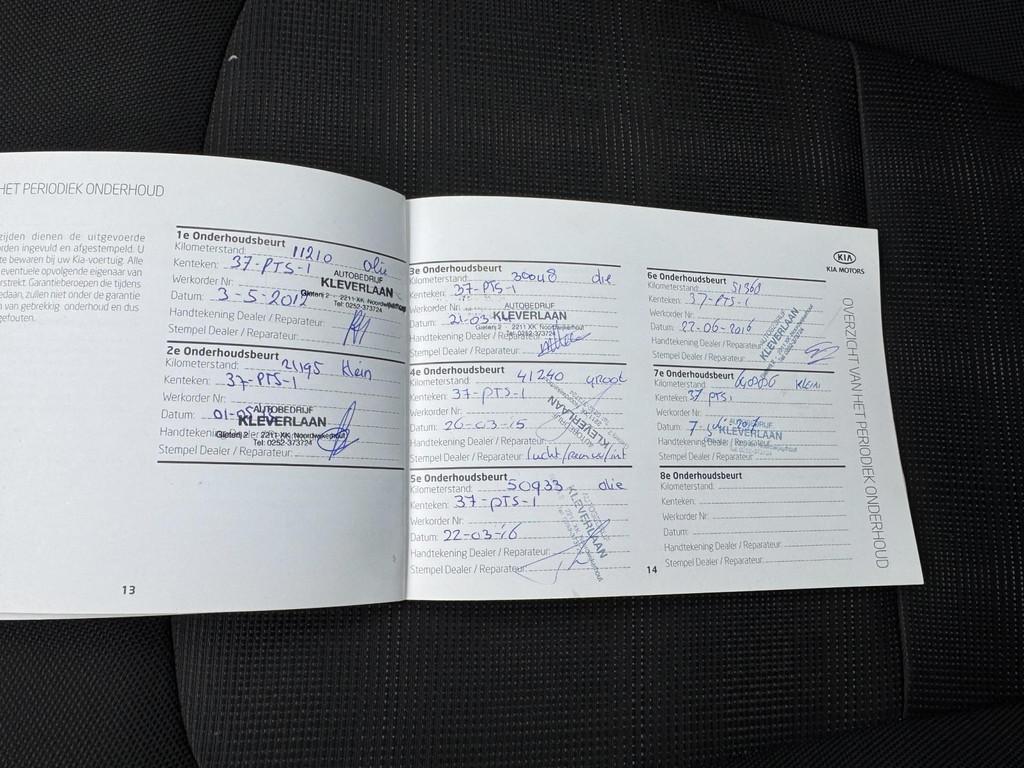 HET PERIODIEK ONDERHOUD
zijden dienen de uitgevoerde
rden ingevuld en afgestempeld. U
te bewaren bij uw Kia-voertuig. Alle
eventuele opvolgende eigenaar van
strekt. Garantieberoepen die tijdens
edaan, zullen niet onder de garantie
n van gebrekkig onderhoud en dus
gefouten.
1e Onderhoudsbeurt
Kilometerstand: 11210 olie
Kenteken: 37-PTS-1
Werkorder Nr:
Datum: 3-5-2012
Handtekening Dealer / Reparateur:
Stempel Dealer / Reparateur:
AUTOBEDRIJF
KLEVERLAAN
Gieterij 2 2211 XK Noordwijkerhout
Tel: 0252-373724
2e Onderhoudsbeurt
Kilometerstand: 21195 klein
Kenteken: 37-PTS-1
Werkorder Nr:
Datum: 01-05
Handtekening Dealer / Reparateur:
Stempel Dealer / Reparateur:
AUTOBEDRIJF
KLEVERLAAN
Gieterij 2 2211 XK Noordwijkerhout
Tel: 0252-373724
13
3e Onderhoudsbeurt
Kilometerstand: 30048 olie
Kenteken: 37-PTS-1
Werkorder Nr:
Datum: 21-03
Handtekening Dealer / Reparateur:
Stempel Dealer / Reparateur:
AUTOBEDRIJF
KLEVERLAAN
Gieterij 2 2211 XK Noordwijkerhout
Tel: 0252-373724
4e Onderhoudsbeurt
Kilometerstand: 41240 groot
Kenteken: 37-PTS-1
Werkorder Nr:
Datum: 26-03-15
Handtekening Dealer / Reparateur:
Stempel Dealer / Reparateur: lucht/
KLEVERLAAN
5e Onderhoudsbeurt
Kilometerstand: 50933 olie
Kenteken: 37-PTS-1
Werkorder Nr:
Datum: 22-03-16
Handtekening Dealer / Reparateur:
Stempel Dealer / Reparateur:
AUTOBEDRIJF
KLEVERLAAN
14
KIA
KIA MOTORS
6e Onderhoudsbeurt
Kilometerstand: 51360
Kenteken: 37-PTS-1
Werkorder Nr:
Datum: 22-06-2016
Handtekening Dealer / Reparateur:
Stempel Dealer / Reparateur:
AUTOBEDRIJF
KLEVERLAAN
7e Onderhoudsbeurt
Kilometerstand: KLEIN
Kenteken: 37 PTS 1
Werkorder Nr:
Datum: 7- 2017
Handtekening Dealer / Reparateur:
Stempel Dealer / Reparateur:
KLEVERLAAN
8e Onderhoudsbeurt
Kilometerstand:
Kenteken:
Werkorder Nr:
Datum:
Handtekening Dealer / Reparateur:
Stempel Dealer / Reparateur:
OVERZICHT VAN HET PERIODIEK ONDERHOUD